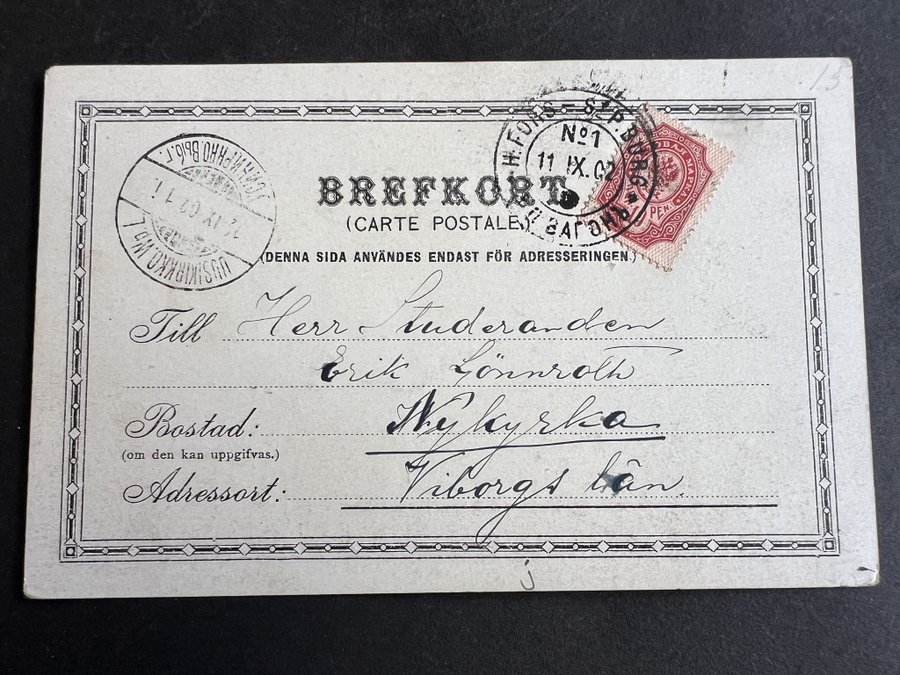 13
H.FORS = ST.P.BURG
№1
11 IX.02
PEN.
BREFKORT
(CARTE POSTALE)
(DENNA SIDA ANVÄNDES ENDAST FÖR ADRESSERINGEN.)
UUSIKIRKKO.W.L
IX 02
Till Herr Studeranden
Erik Lönnroth
Bostad: Nykyrka
(om den kan uppgifvas.)
Adressort: Viborgs län.
j